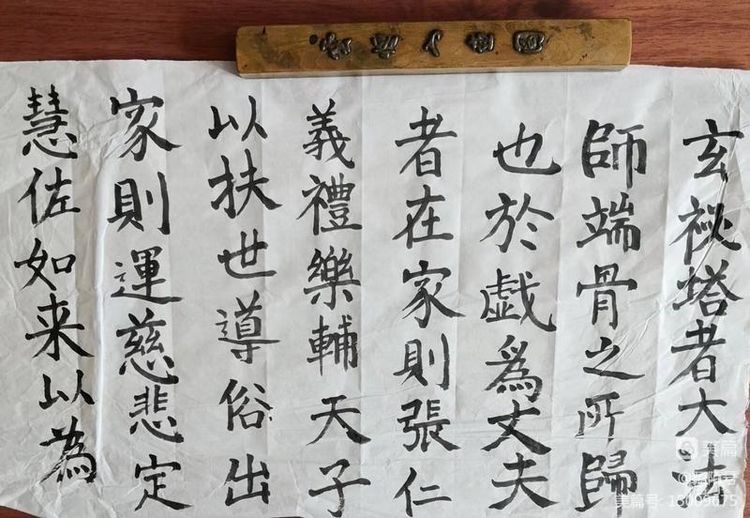 玄祕塔者大法
師端骨之所歸
也於戯爲丈夫
者在家則張仁
義禮樂輔天子
以扶世導俗出
家則運慈悲定
慧佐如来以為
美篇
美篇号: